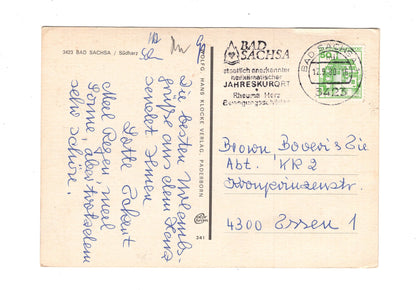 3423 BAD SACHSA / Südharz
Die besten Urlaubs-
grüße aus dem Harz
sendet Ihnen
Lotte
Mal Regen, mal
Sonne, aber trotzdem
sehr schön.
WOLFG. HANS KLOCKE VERLAG, PADERBORN
241
BAD
SACHSA
staatlich anerkannter
heilklimatischer
JAHRESKURORT
Rheuma Herz
Bewegungsschäden
BAD SACHSA
3423
Brown Boveri & Cie
Abt. KR2
Kronprinzenstr.
4300 Essen 1